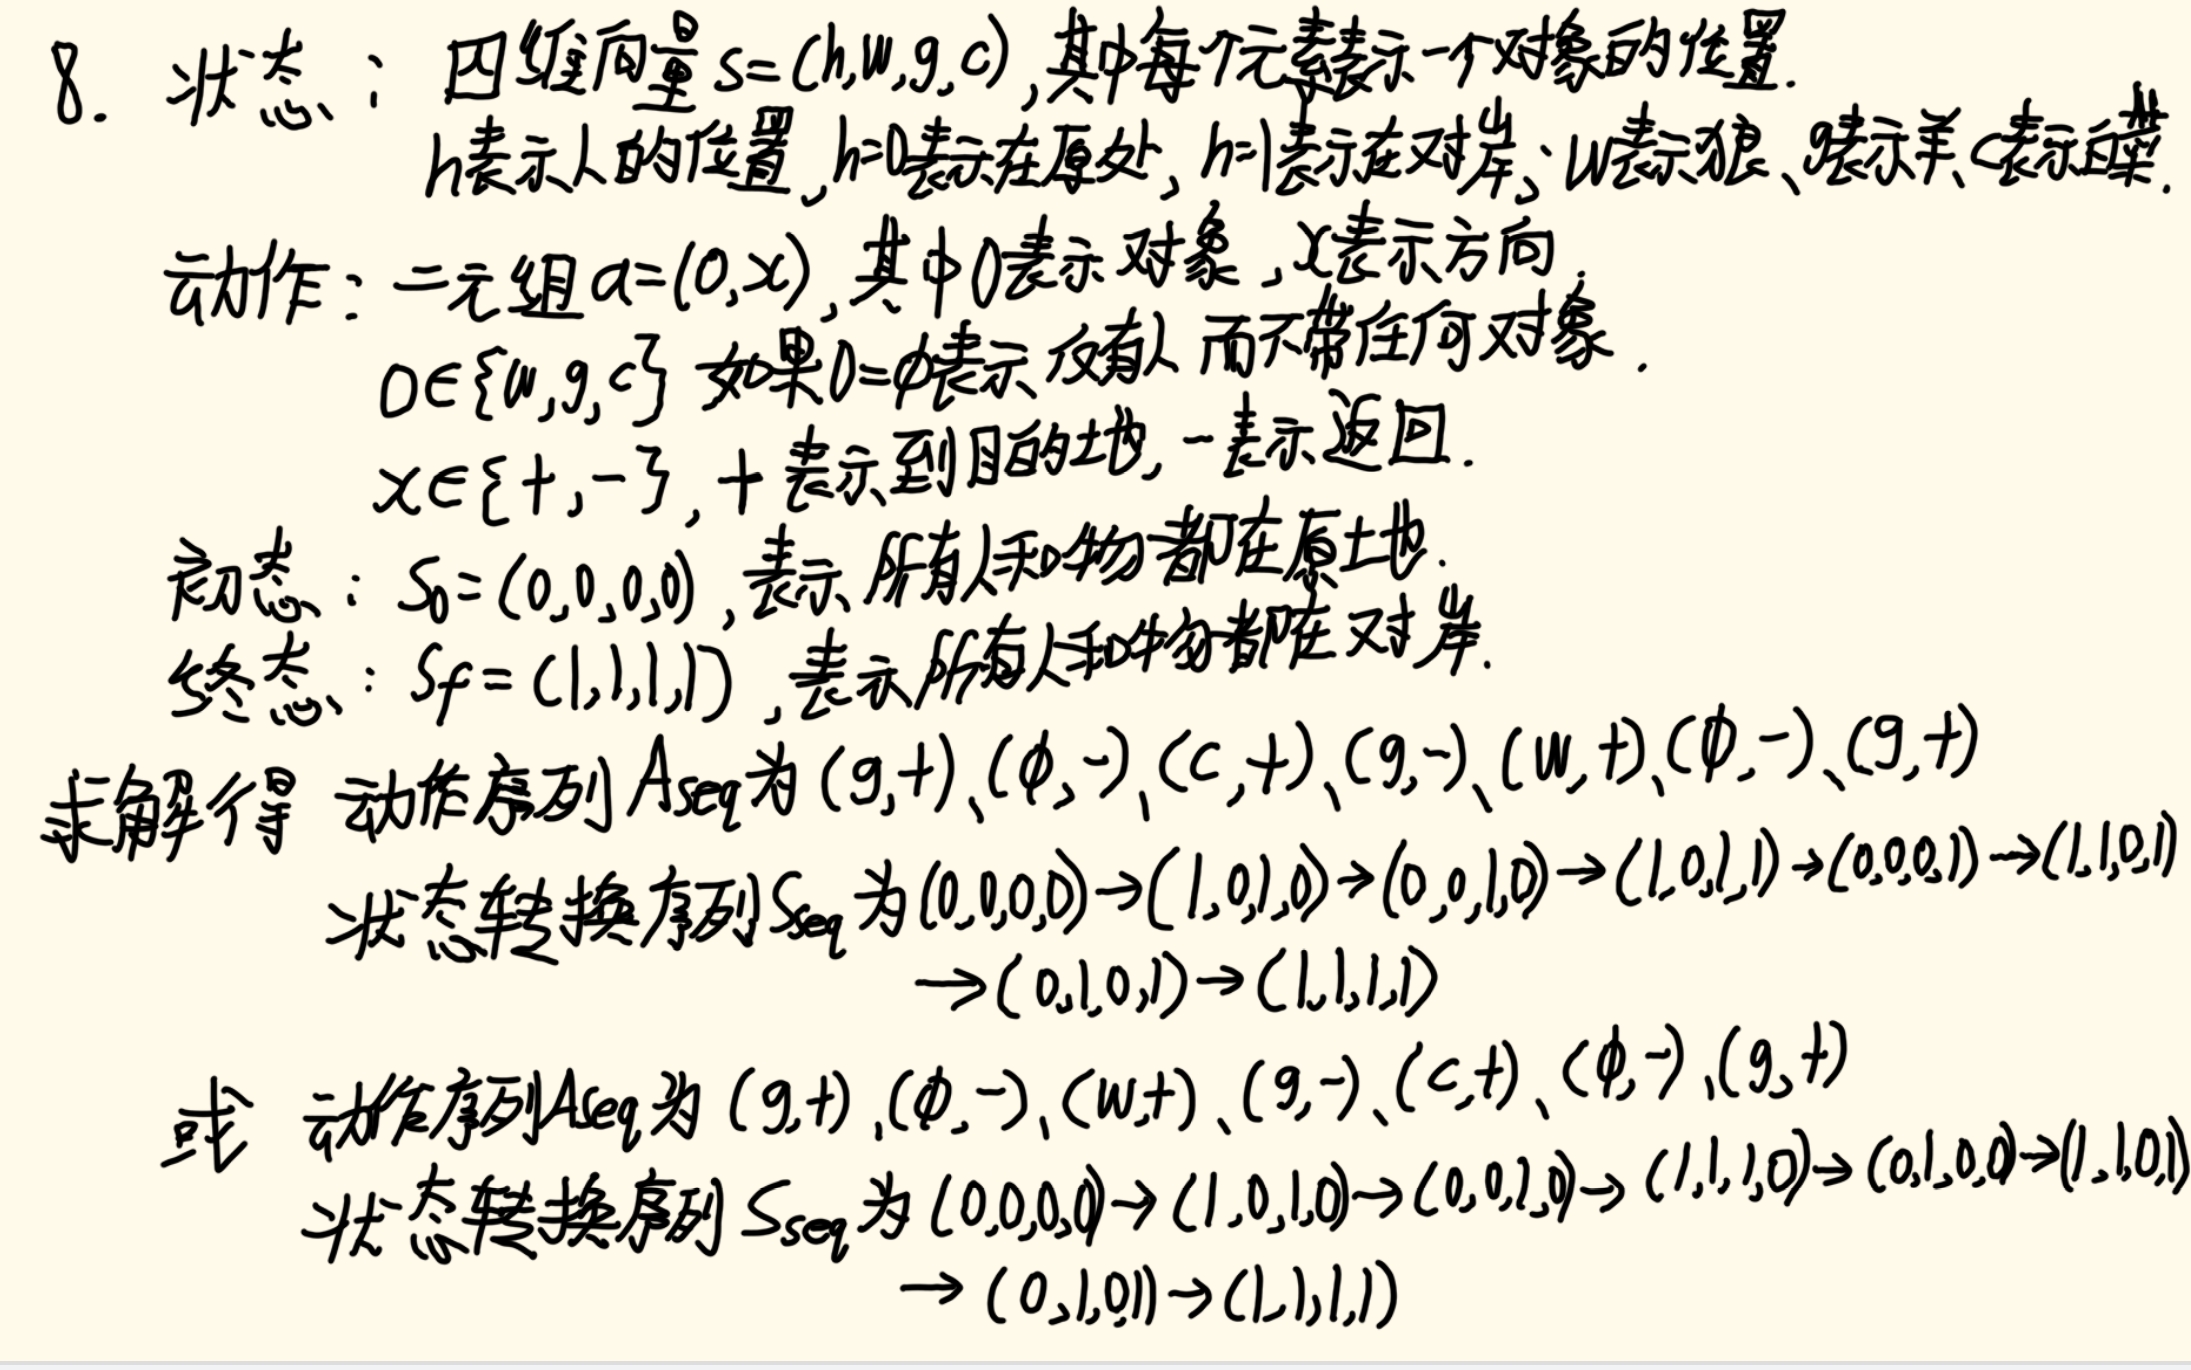 8. 状态: 四维向量 s=(h,w,g,c),其中每个元素表示一个对象的位置.
h表示人的位置,h=0表示在原处,h=1表示在对岸;w表示狼、g表示羊、c表示白菜.
动作: 二元组 a=(O,x),其中O表示对象,x表示方向.
O∈{w,g,c} 如果O=ϕ表示仅有人而不带任何对象.
x∈{+,-},+表示到目的地,-表示返回.
初态: S₀=(0,0,0,0),表示所有人和物都在原土地.
终态: Sf=(1,1,1,1),表示所有人和物都在对岸.
求解得 动作序列 Aseq为(g,+)、(ϕ,-)、(c,+)、(g,-)、(w,+)、(ϕ,-)、(g,+)
状态转换序列Sseq为(0,0,0,0)→(1,0,1,0)→(0,0,1,0)→(1,0,1,1)→(0,0,0,1)→(1,1,0,1)
→(0,1,0,1)→(1,1,1,1)
或 动作序列Aseq为(g,+)、(ϕ,-)、(w,+)、(g,-)、(c,+)、(ϕ,-)、(g,+)
状态转换序列 Sseq为(0,0,0,0)→(1,0,1,0)→(0,0,1,0)→(1,1,1,0)→(0,1,0,0)→(1,1,0,1)
→(0,1,0,1)→(1,1,1,1)